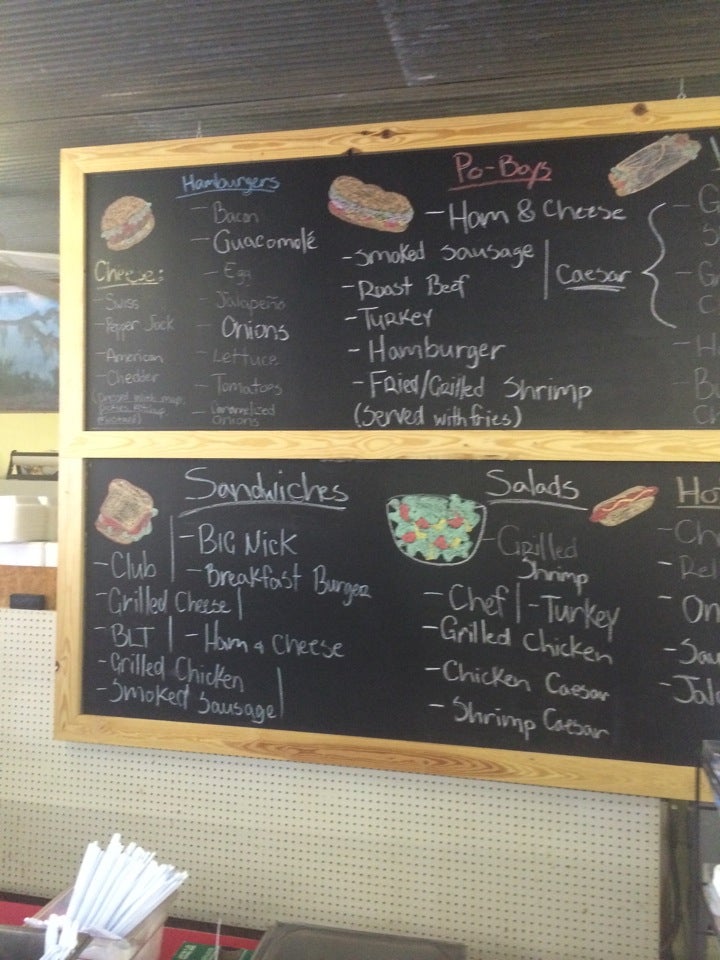 Hamburgers
- Bacon
- Guacomolé
- Egg
- Jalapeño
- Onions
- Lettuce
- Tomatoes
- Caramelized
Onions
Cheese:
- Swiss
- Pepper Jack
- American
- Chedder
Po-Boys
- Ham & Cheese
- Smoked Sausage
- Roast Beef
- Turkey
- Hamburger
- Fried/Grilled Shrimp
(Served with fries)
Caesar
Sandwiches
- Club
- Grilled Cheese
- BLT
- Grilled Chicken
- Smoked Sausage
- BIG NICK
- Breakfast Burger
- Ham & Cheese
Salads
- Grilled
Shrimp
- Chef - Turkey
- Grilled Chicken
- Chicken Caesar
- Shrimp Caesar
Ho
- Ch
- Rel
- On
- Sau
- Jal